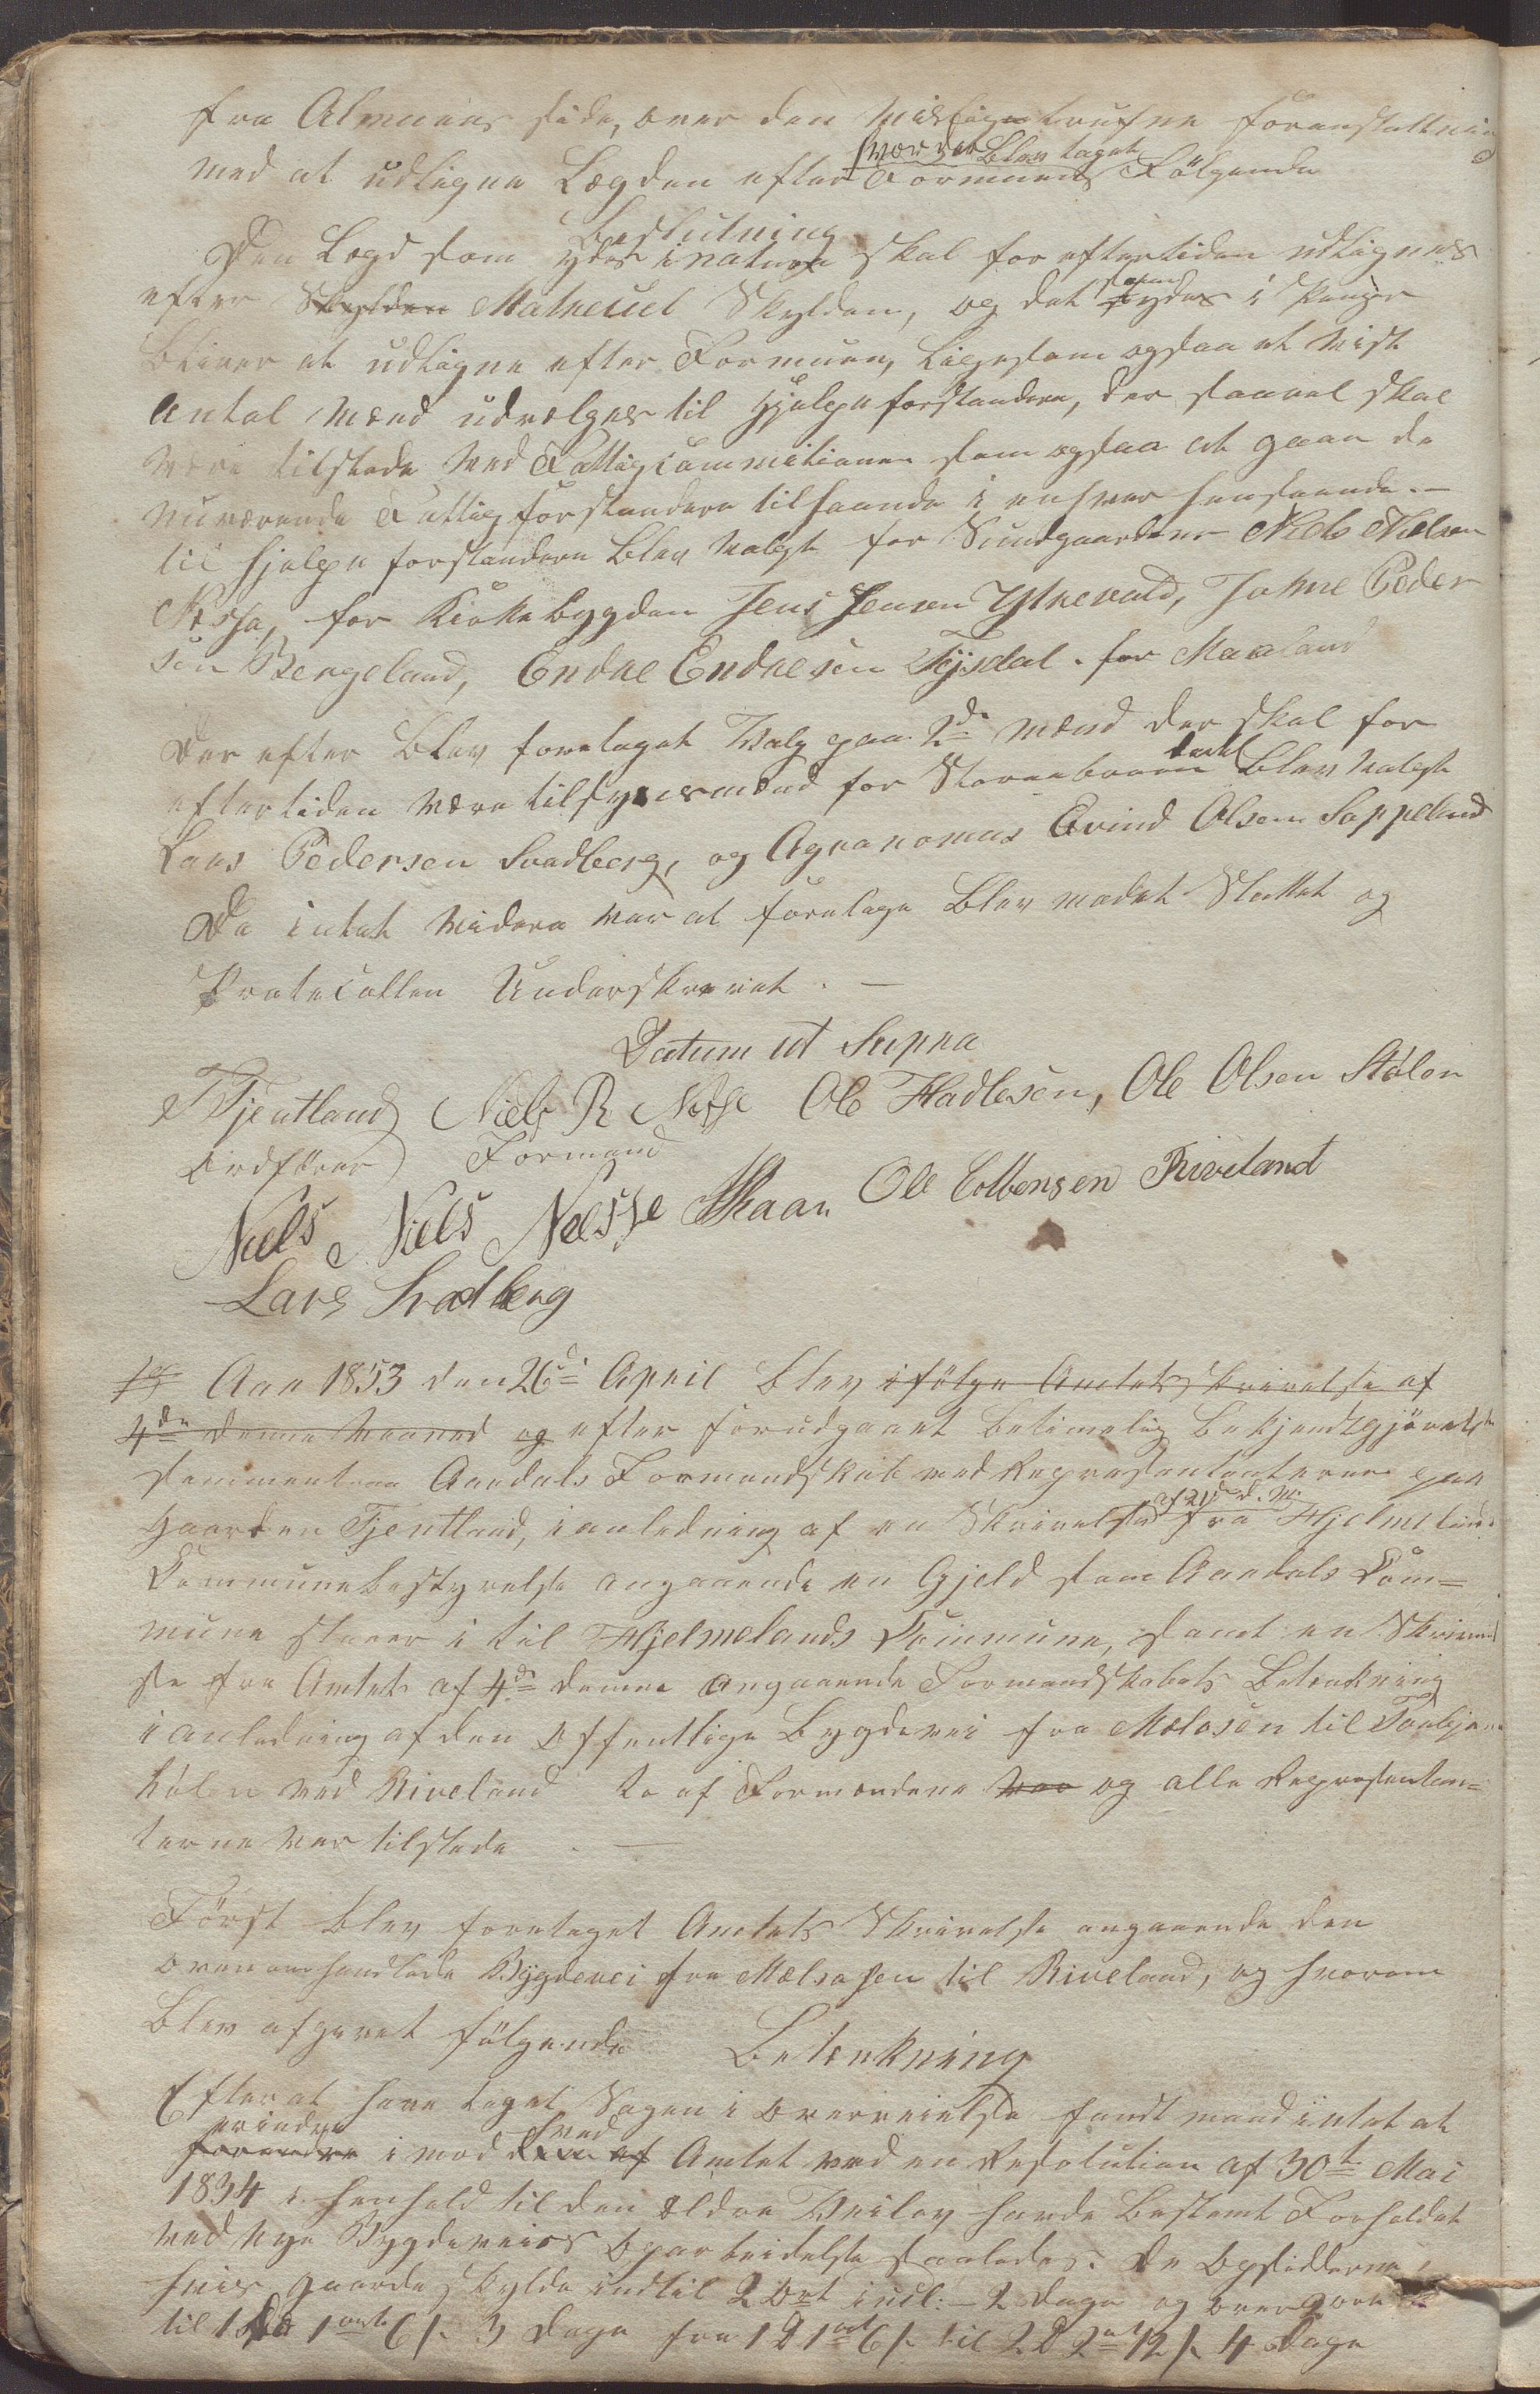 fra Almuens side, over den trufne foranstaltning
hvorved Blev taget
med at udligne Lægden efter Formuen Fölgende
Beslutning
Den Lægd som ydes i natura skal for eftertiden udlignes
efter Skylden Matrecul Skylden, og det som ydes i Penge
bliver at udligne efter Formuen, ligesom ogsaa et vist
Antal Mænd udvælges til Hjelpeforstandere, der saavel skal
være tilstede ved Fattigcommitionen som ogsaa at gaae de
nuværende Fattigforstandere tilhaande i enhver henseende. —
til Hjelpeforstandere blev valgt for Sundgaardene Niels Nielsen
Nesse, for Kirkebygden Jens Jensen Ytrevold, Johne Peder
sen Bergeland, Endre Endresen Tysdal. for Maaland
Der efter blev foretaget Valg paa 2de Mænd der skal for
eftertiden være tilsynsmænd for Storaabroen dertil blev valgt
Lars Pedersen Svadberg, og Agronomus Eivind Olsen Soppeland
Da intet videre var at foretage blev mødet Sluttet og
Protocollen Underskrevet. —
Datum ut Supra
T Tjentland Niels R Nesse Ole Hadlesen, Ole Olsen Stölen
Ordförer Formand
Niels Niels Nesse Skaar Ole Colbensen Riveland
Lars Svadberg
Aar 1853 den 26de April blev ifölge Amtets Skrivelse af
4de denne Maaned og efter forudgaaet betimelig Bekjendtgjörelse
Aardals Formandskab med Repræsentanterne paa
Gaarden Tjentland, i anledning af en Skrivelse af 21de d. M. fra Hjelmelands
Commune bestyrelse angaaende en Gjeld som Aardals Com=
mune staaer i til Hjelmelands Commune, samt en Skrivel
se fra Amtet af 4de denne angaaende Formandskabets Betænkning
i anledning af den Offentlige Bygdevei fra Melosen til
hölen ved Riveland to af Formændene var og alle Repræsentan=
terne var tilstede. —
Först blev foretaget Amtets Skrivelse angaaende den
ovenomhandlede Bygdevei fra Melsosen til Riveland, og hvorom
blev afgivet fölgende Betænkning
Efter at have taget Sagen i Overveielse fandt mand intet at
erindre hvad
forandre imod den af Amtet ved en Resolution af 30te Mai
1834 i henhold til den ældre Veilov havde bestemt Forholdet
ved nye Bygdeveies Oparbeidelse saaledes: De Opsiddere
hvis Gaarde skylde indtil 2 Ort incl: — 2 Dage og over 2 ort
til 1 D 1 ort 6 s. 3 Dage fra 1 D 1 ort 6 s. til 2 D 2 ort 12 s. 4 Dage